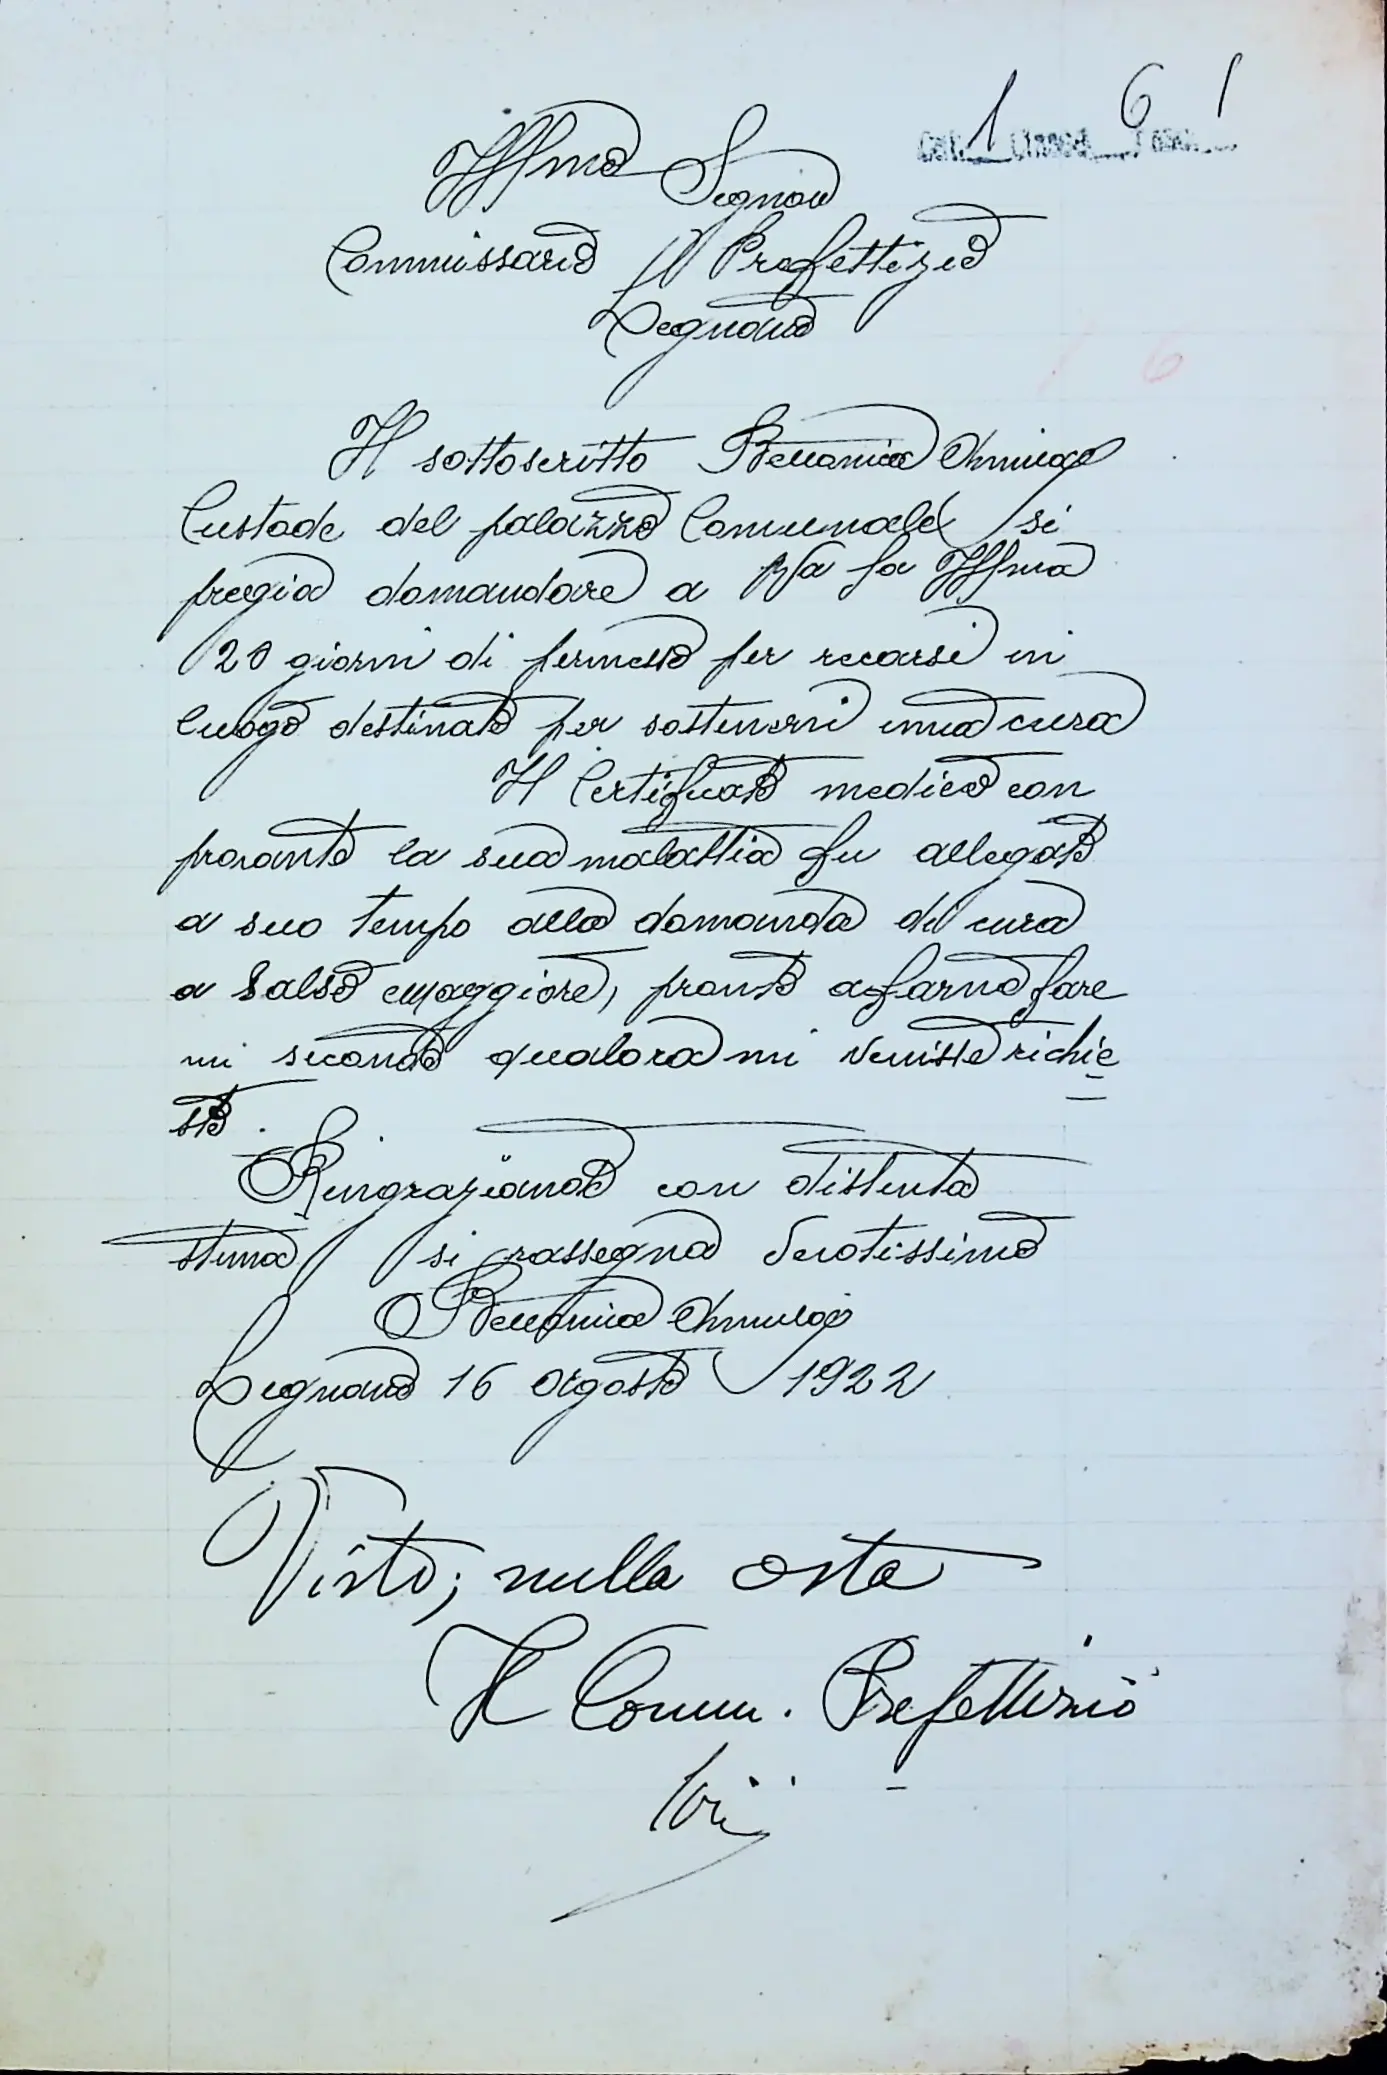 1 6 1
Cat. Classe Fasc.
Illmo Signor
Commissario Prefettizio
Legnano
Il sottoscritto
Custode del palazzo Comunale si
pregia domandare a Illma
20 giorni di permesso per recarsi in
luogo destinato per sostenervi una cura
Il Certificato medico con
provante la sua malattia fu allegato
a suo tempo alla domanda di cura
a Salso Maggiore, pronto a farno fare
mi secondo qualora mi venisse richie
sto.
Ringraziando con distinta
stima si rassegna Devotissimo
Legnano 16 Agosto 1922
Visto; nulla osta
Il Comm. Prefettizio